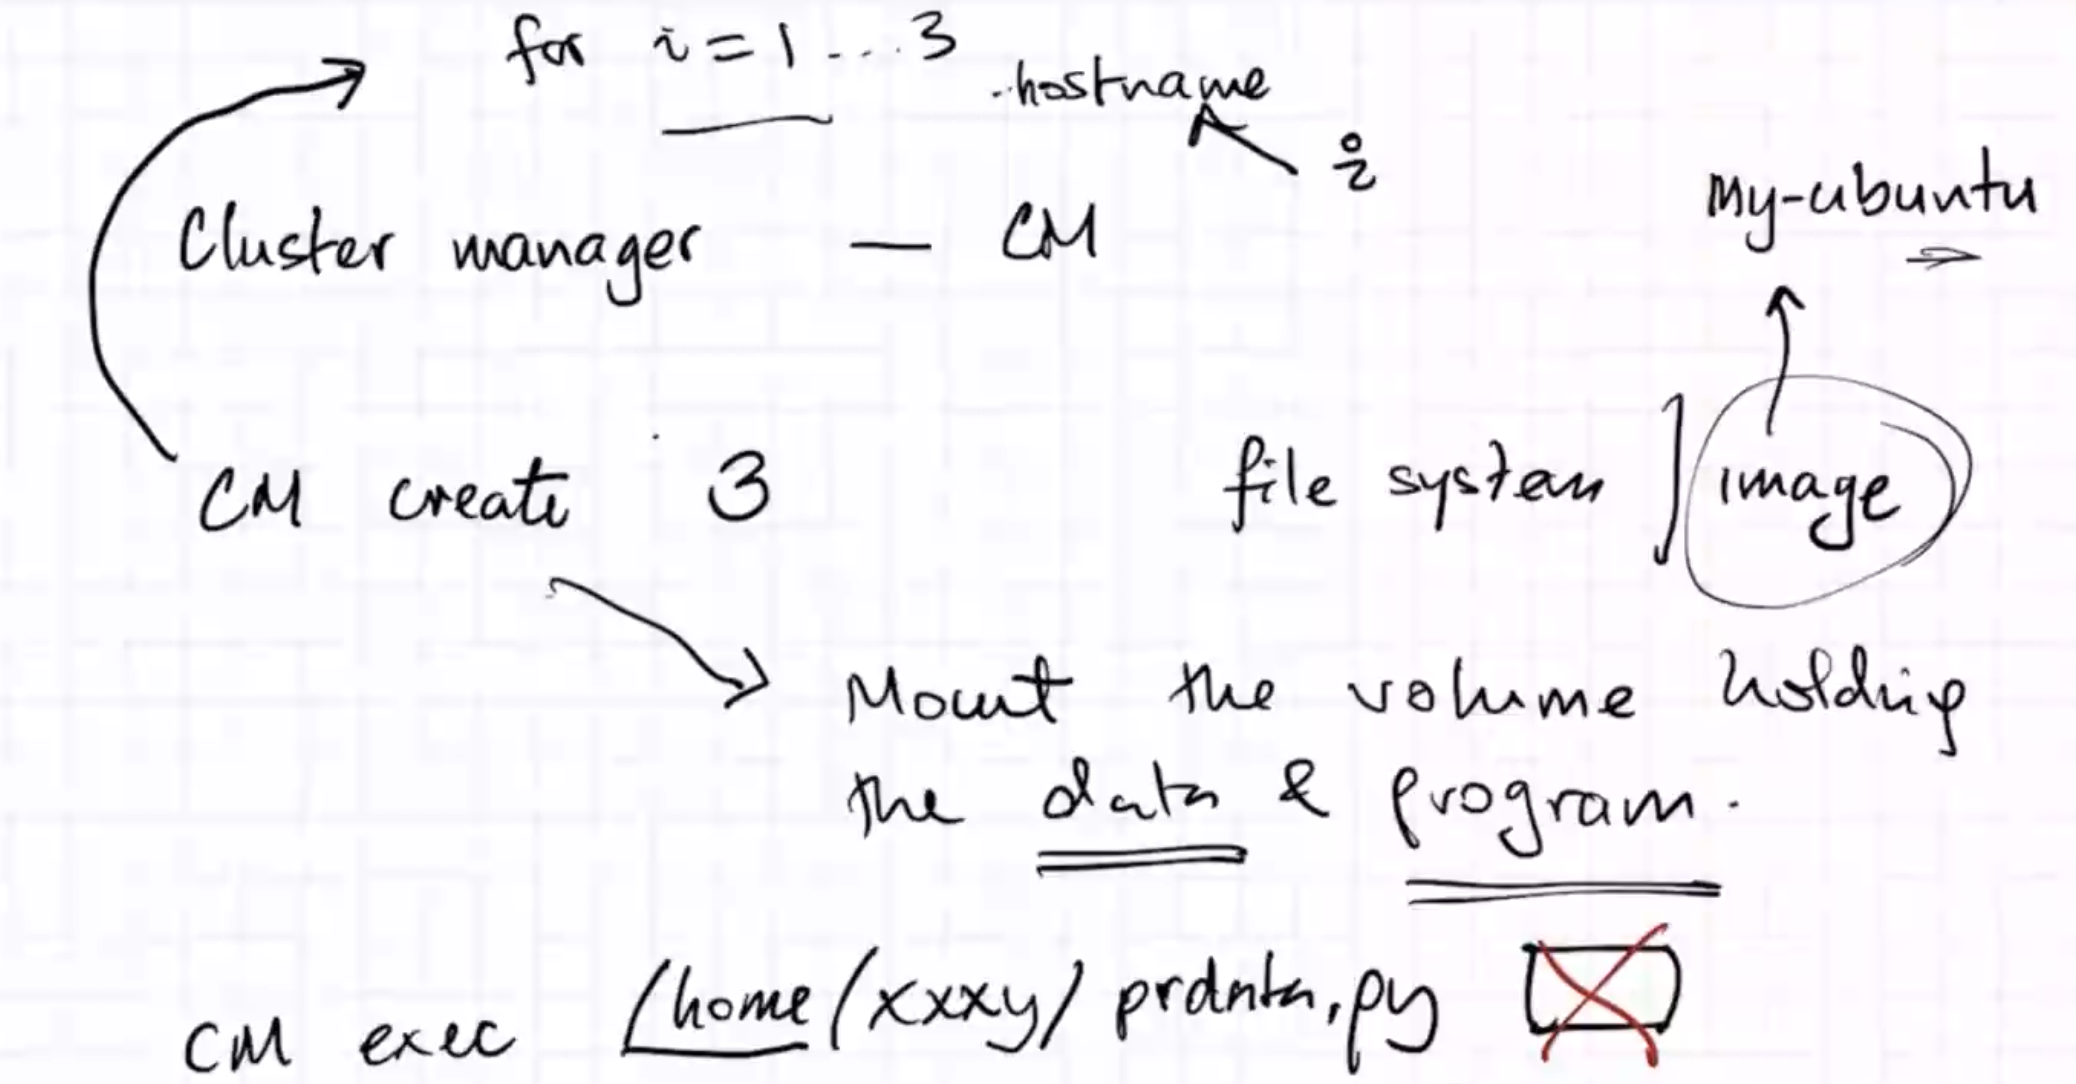 for i = 1 ... 3
hostname
i
Cluster manager — CM
my-ubuntu
CM create 3
file system
image
Mount the volume holding
the data & program.
CM exec /home/xxxy/prdata.py